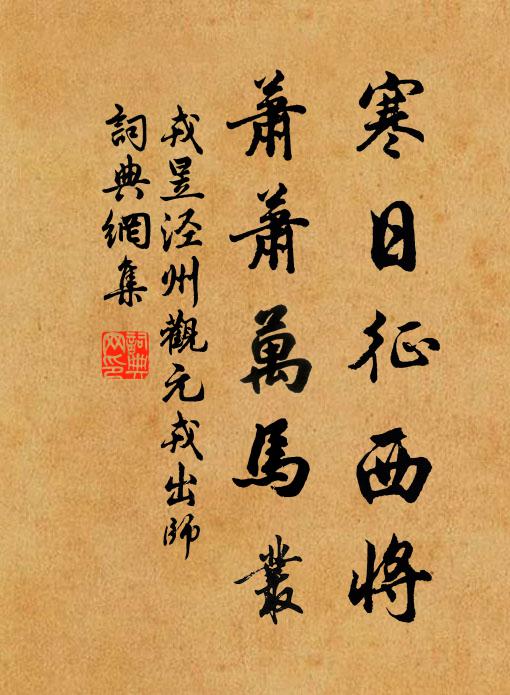 寒日征西將
蕭蕭萬馬叢
戎昱涇州觀元戎出師
詞典網集
詞典
网印